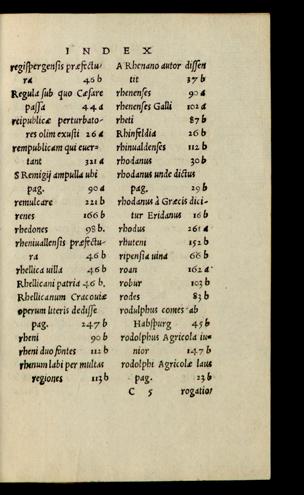 INDEX
regispergensis præfectu-
ra 46 b
Regula sub quo Cæsare
passa 44 a
reipublicæ perturbato-
res olim exusti 26 a
rempublicam qui euer-
tant 321 a
S Remigij ampulla ubi
pag. 90 a
remulcare 221 b
renes 166 b
rhedones 98 b.
rheniuallensis præfectu-
ra 46 b
rhellica uilla 46 b
Rhellicani patria 46 b.
Rhellicanum Cracouiæ
operum literis dedisse
pag. 247 b
rheni 90 b
rheni duo fontes 112 b
rhenum labi per multas
regiones 113 b
A Rhenano autor dissen
tit 37 b
rhenenses 90 a
rhenenses Galli 102 a
rheti 87 b
Rhinfeldia 26 b
rhinualdenses 112 b
rhodanus 30 b
rhodanus unde dictus
pag. 29 b
rhodanus à Græcis dici-
tur Eridanus 16 b
rhodus 261 a
rhuteni 152 b
ripensia uina 66 b
roan 162 a
robur 103 b
rodes 83 b
rodulphus comes ab
Habspurg 45 b
rodolphus Agricola iu-
nior 147 b
rodolphi Agricolæ laus
pag. 23 b
C 5 rogatio